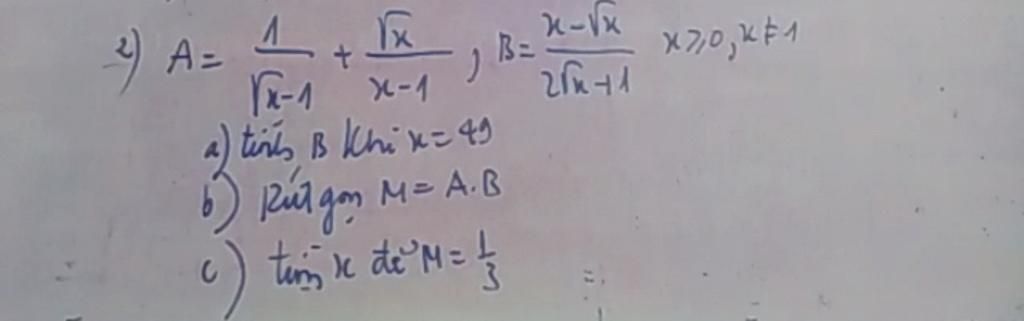 2) A = 1/(√x-1) + √x/(x-1) ; B = (x-√x)/(2√x+1) x ≥ 0, x ≠ 1
a) tính B khi x = 49
b) Rút gọn M = A.B
c) tìm x để M = 1/3